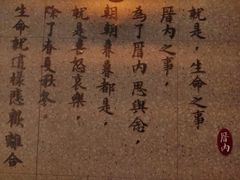 就是，生命之事
厝內之事，
為了厝內思與念，
朝朝暮暮都是，
就是喜怒哀樂，
除了春夏秋冬，
生命就這樣悲歡離合
厝內